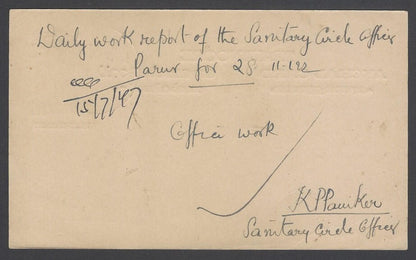 Daily work report of the Sanitary Circle Officer
Parur for 28 11-122
15/7/47
Office work
K P Paniker
Sanitary Circle Officer